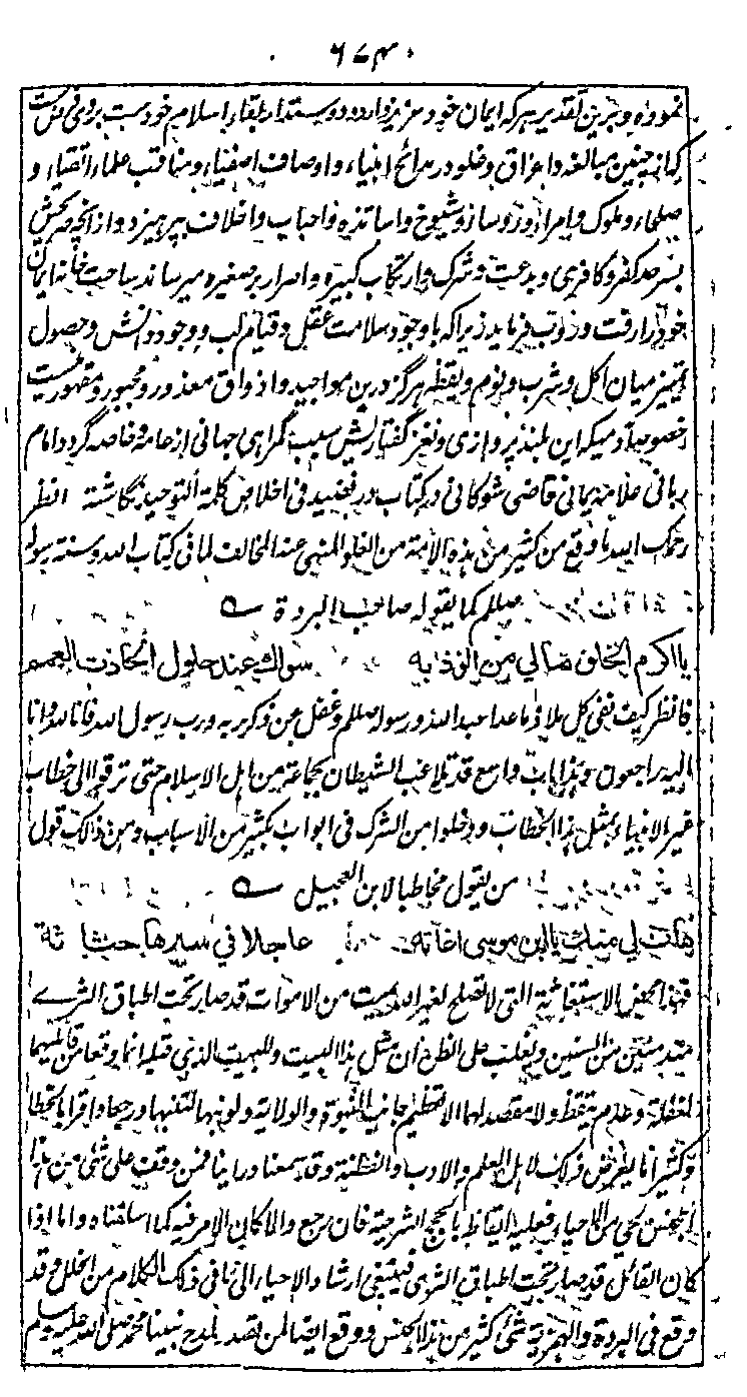 ۶۷۴
نموده و برین تقدیر هر که ایمان خود عزیز دارد و دوستدار بقاء اسلام خودست بر وی فرض ست
که از چنین مبالغه و اغراق و غلو در مدائح انبیاء و اوصاف اصفیاء و مناقب علماء اتقیاء و
صلحاء و ملوک و امراء و وزراء و شیوخ و اساتذه و احباب و اخلاف بپرهیزد و از آنچه صریحش
بسرحد کفر و کافری و بدعت و شرک و ارتکاب کبیره و اصرار بر صغیره میرساند ساحت خانه ایمان
خود را رفت و روب فرماید زیرا که باوجود سلامت عقل و قیام لب و وجود دانش و حصول
تمییز میان اکل و شرب و نوم و یقظه هرگز درین مواجید و اذواق معذور و مجبور و مقهور نیست
خصوصا دمیکه این بلند پروازی و نغز گفتاریش سبب گمراهی جهانی از عامه و خاصه گردد امام
ربانی علامه یمانی قاضی شوکانی در کتاب در نضید فی اخلاص کلمة التوحید نگاشته انظر
رحمک الله ما وقع من کثیر من هذه الامة من الغلو المنهی عنه المخالف لما فی کتاب الله و سنة رسوله
صلعم کما یقوله صاحب البردة
یا اکرم الخلق مالی من الوذ به سواک عند حلول الحادث العمم
فانظر کیف نفی کل ملاذ ما عدا عبد الله و رسوله صلعم و غفل عن ذکر ربه و رب رسول الله فانا لله و انا
الیه راجعون و هذا باب واسع قد تلاعب الشیطان بجماعة من اهل الاسلام حتی ترقوا الی خطاب
غیر الانبیاء بمثل هذا الخطاب و دخلوا من الشرک فی ابواب بکثیر من الاسباب و من ذلک قول
من یقول مخاطبا لابن العجیل
هات لی منک یا ابن موسی اغاثه عاجلا فی سیرها حثاثه
فهذا محض الاستغاثة التی لا تصلح لغیر الله لمیت من الاموات قد صار تحت اطباق الثری
منذ مئین من السنین و یغلب علی الظن ان مثل هذا البیت و البیت الذی قبله انما وقعا من قائلیهما
لغفلة و عدم تیقظ و لا مقصد لهما الا تعظیم جانب النبوة و الولایة و لو نبها لتنبها و رجعا و اقرا بالخطا
و کثیرا ما یعرض ذلک لاهل العلم و الادب و الفطنة و قد سمعنا و راینا فمن وقف علی شئ من هذا
الجنس لحی من الاحیاء فعلیه ایقاظه بالحجج الشرعیة فان رجع و الا کان الامر فیه کما اسلفناه و اما اذا
کان القائل قد صار تحت اطباق الثری فینبغی ارشاد الاحیاء الی ما فی ذلک الکلام من الخلل و قد
وقع فی البردة و الهمزیة شئ کثیر من هذا الجنس و وقع ایضا لمن تصدی لمدح نبینا محمد صلی الله علیه وسلم